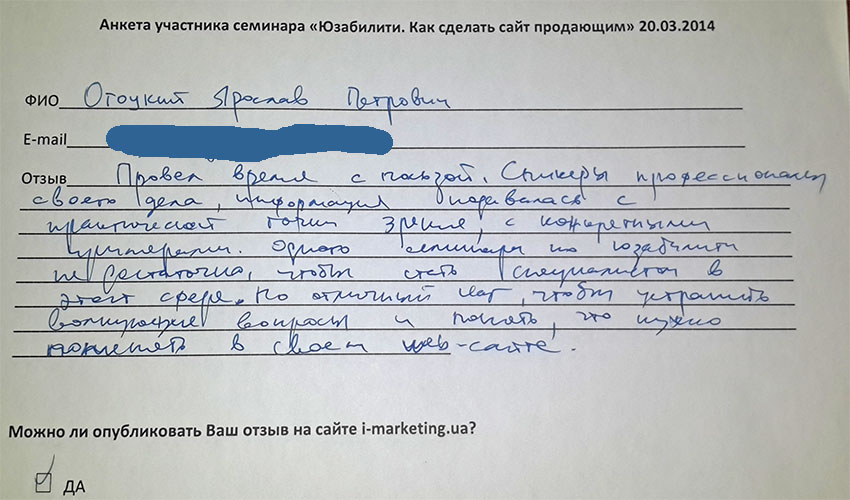 Анкета участника семинара «Юзабилити. Как сделать сайт продающим» 20.03.2014
ФИО Отоцкий Ярослав Петрович
E-mail
Отзыв Провел время с пользой. Спикеры профессионалы
своего дела, информация подавалась с
практической точки зрения, с конкретными
примерами. Одного семинара по юзабилити
не достаточно, чтобы стать специалистом в
этой сфере. Но отличный шаг, чтобы устранить
волнующие вопросы и понять, что нужно
поменять в своем web-сайте.
Можно ли опубликовать Ваш отзыв на сайте i-marketing.ua?
ДА